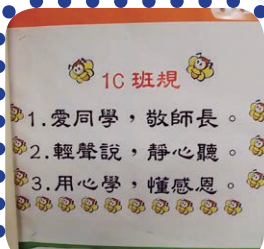 1C 班規
1.愛同學，敬師長。
2.輕聲說，靜心聽。
3.用心學，懂感恩。